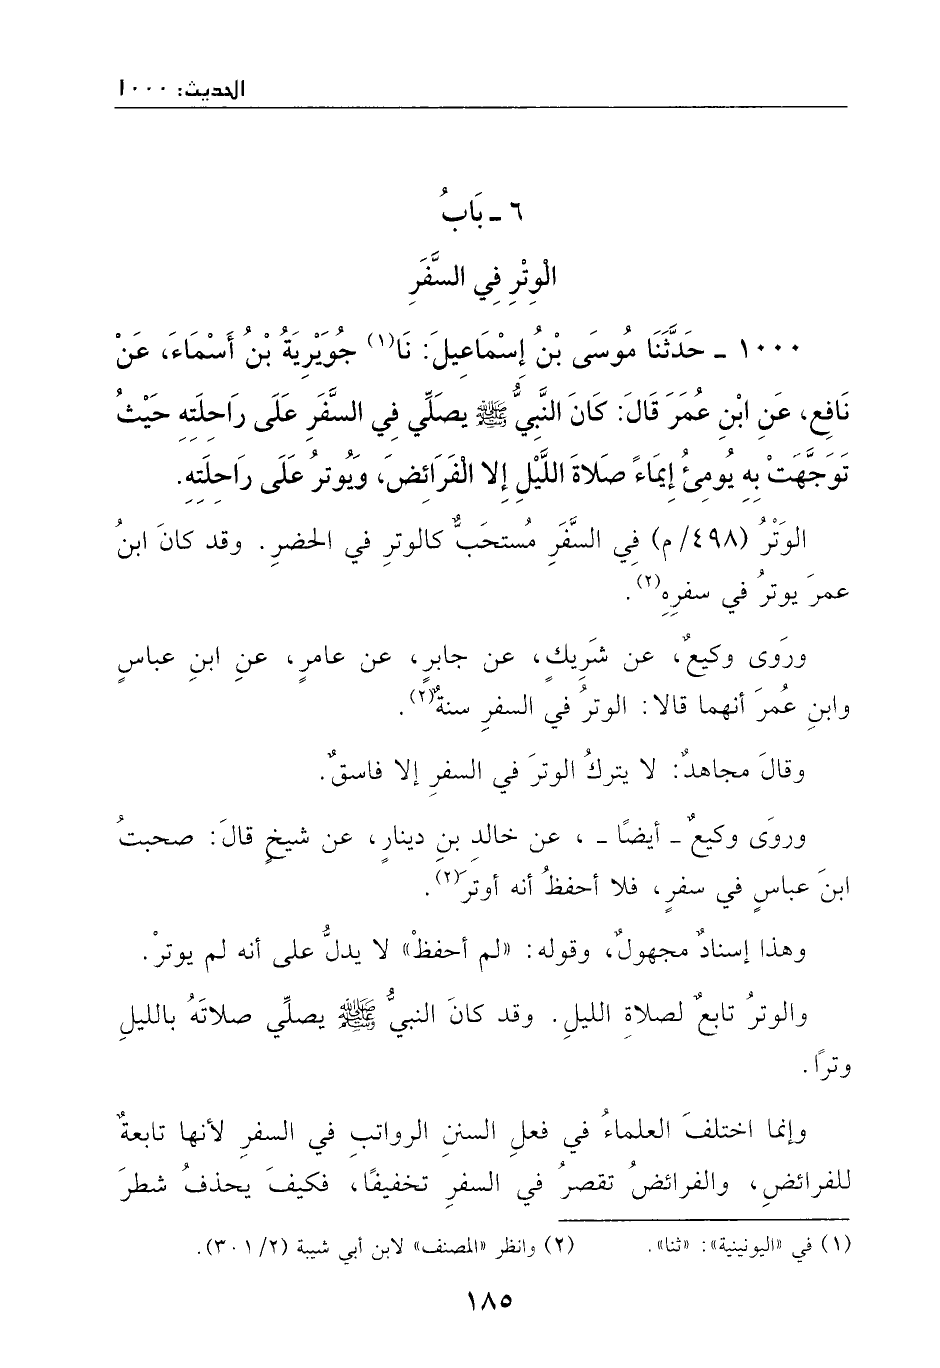 الحديث: ١٠٠٠
٦ ـ بَابُ
الْوِتْرِ فِي السَّفَرِ
١٠٠٠ ـ حَدَّثَنَا مُوسَى بْنُ إِسْمَاعِيلَ: نَا(١) جُوَيْرِيَةُ بْنُ أَسْمَاءَ، عَنْ
نَافِعٍ، عَنِ ابْنِ عُمَرَ قَالَ: كَانَ النَّبِيُّ ﷺ يصَلِّي فِي السَّفَرِ عَلَى رَاحِلَتِهِ حَيْثُ
تَوَجَّهَتْ بِهِ يُومِئُ إِيمَاءً صَلَاةَ اللَّيْلِ إِلا الْفَرَائِضَ، وَيُوتِرُ عَلَى رَاحِلَتِهِ.
الوَتْرُ (٤٩٨/ م) فِي السَّفَرِ مُستحَبٌّ كالوترِ في الحضرِ. وقد كانَ ابنُ
عمرَ يوترُ في سفرِهِ(٢).
وروَى وكيعٌ، عن شَرِيكٍ، عن جابرٍ، عن عامرٍ، عنِ ابنِ عباسٍ
وابنِ عُمرَ أنهما قالا: الوترُ في السفرِ سنةٌ(٢).
وقالَ مجاهدٌ: لا يتركُ الوترَ في السفرِ إلا فاسقٌ.
وروَى وكيعٌ ـ أيضًا ـ ، عن خالدِ بنِ دينارٍ، عن شيخٍ قالَ: صحبتُ
ابنَ عباسٍ في سفرٍ، فلا أحفظُ أنه أوترَ(٢).
وهذا إسنادٌ مجهولٌ، وقوله: «لم أحفظْ» لا يدلُّ على أنه لم يوترْ.
والوترُ تابعٌ لصلاةِ الليلِ. وقد كانَ النبيُّ ﷺ يصلِّي صلاتَهُ بالليلِ
وترًا.
وإنما اختلفَ العلماءُ في فعلِ السننِ الرواتبِ في السفرِ لأنها تابعةٌ
للفرائضِ، والفرائضُ تقصرُ في السفرِ تخفيفًا، فكيفَ يحذفُ شطرَ
(١) في «اليونينية»: «ثنا». (٢) وانظر «المصنف» لابن أبي شيبة (٣٠١/٢).
١٨٥